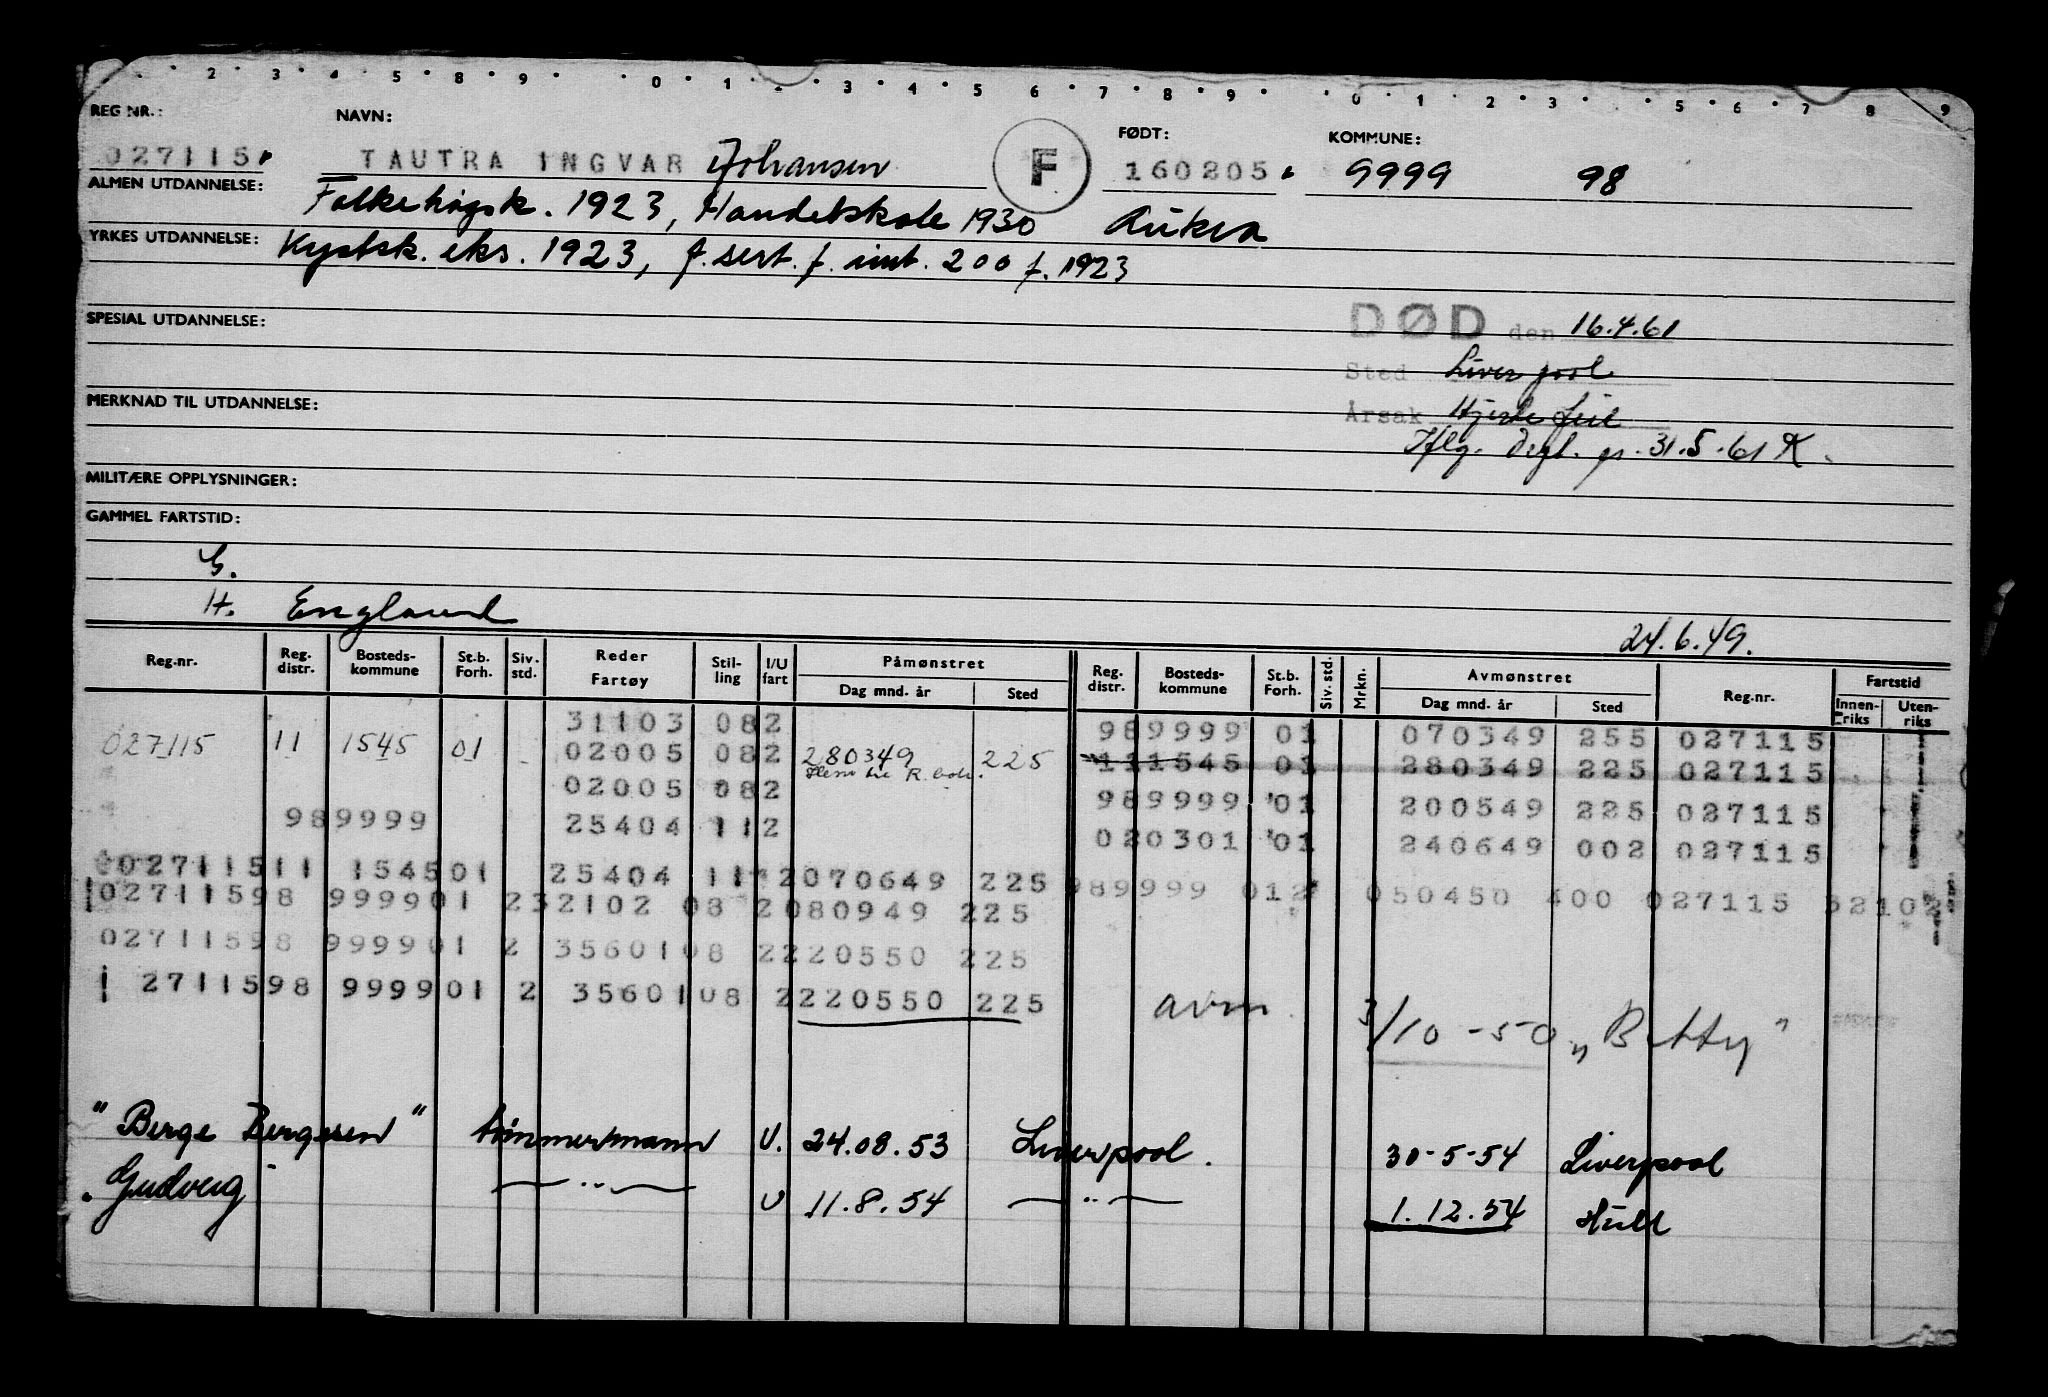 2 3 4 5 8 9 0 1 2 3 4 5 6 7 8 9 0 1 2 3 5 6 7 8 9
REG NR.: NAVN: FØDT: KOMMUNE:
027115 TAUTRA INGVAR Johansen F 160205 9999 98
ALMEN UTDANNELSE: Folkehøgsk. 1923, Handelskole 1930 Aukra
YRKES UTDANNELSE: Kystsk. eks. 1923, f. sert. f. int. 200 f. 1923
SPESIAL UTDANNELSE: DØD den 16.4.61
Sted Liverpool
MERKNAD TIL UTDANNELSE: Årsak Hjertefeil
Iflg. 31.5.61 K.
MILITÆRE OPPLYSNINGER:
GAMMEL FARTSTID:
S.
H. England 24.6.49.
Reg.nr. Reg. distr. Bosteds-kommune St.b. Forh. Siv. std. Reder Fartøy Stil-ling I/U fart Påmønstret Dag mnd. år Sted Reg. distr. Bosteds-kommune St.b. Forh. Siv. std. Mrkn. Avmønstret Dag mnd. år Sted Reg.nr. Fartstid Innen-riks Uten-riks
31103 082 989999 01 070349 255 027115
027115 11 1545 01 02005 082 280349 225 111545 01 280349 225 027115
02005 082 989999 01 200549 225 027115
989999 25404 112 020301 01 240649 002 027115
02711511 154501 25404 11 2070649 225
02711598 999901 232102 08 2080949 225 989999 012 050450 400 027115 32102
02711598 999901 2 3560108 2220550 225
2711598 999901 2 3560108 2220550 225 avm. 3/10-50 "Betty"
"Berge Bergesen" tømmermann U. 24.08.53 Liverpool. 30-5-54 Liverpool
"Gudveig" — " — U 11.8.54 — " — 1.12.54 Hull